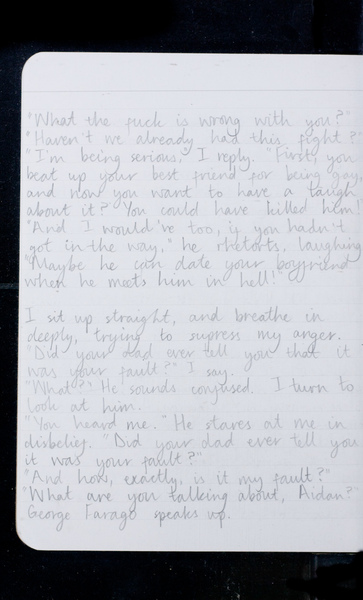 "What the fuck is wrong with you?"
"Haven't we already had this fight?
"I'm being serious," I reply. "First, you
beat up your best friend for being gay,
and now you want to have a laugh
about it? You could have killed him!"
"And I would've too, if you hadn't
got in the way," he rhetorts, laughing
"Maybe he can date your boyfriend
when he meets him in hell!"
I sit up straight, and breathe in
deeply, trying to supress my anger.
"Did your dad ever tell you that it
was your fault?" I say.
"What?" He sounds confused. I turn to
look at him.
"You heard me." He stares at me in
disbelief. "Did your dad ever tell you
it was your fault?"
"And how, exactly, is it my fault?"
"What are you talking about, Aidan?"
George Farago speaks up.